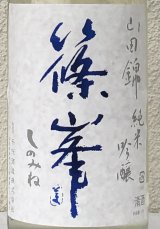 山田錦 純米
吟醸
篠峯
しのみね
清酒